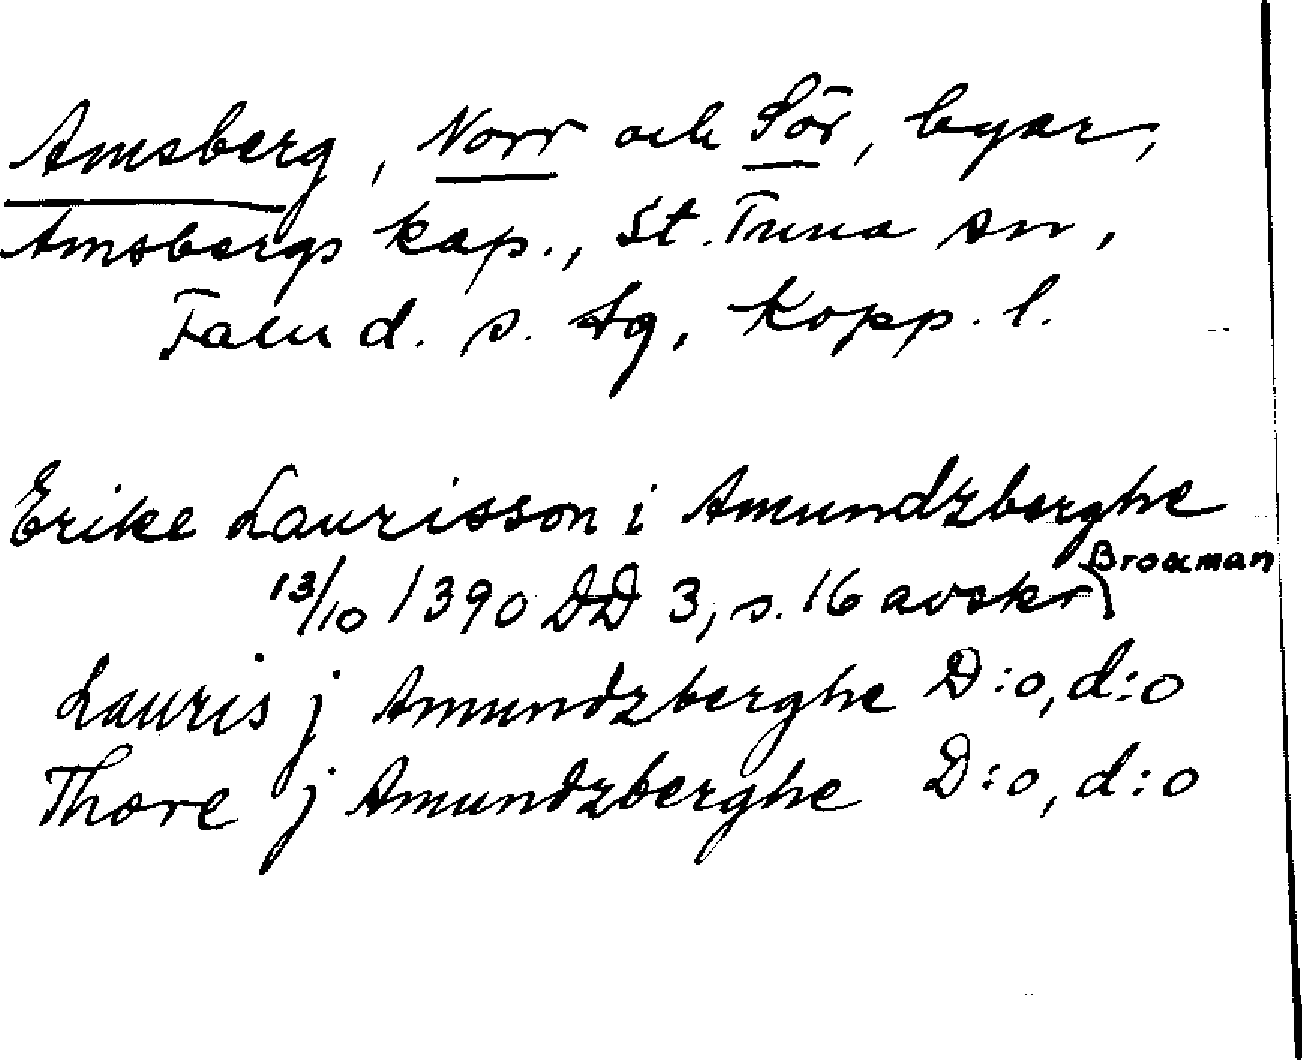 Amsberg, Norr och Sör, byar,
Amsbergs kap., St. Tuna sn,
Falu d. s. tg, Kopp. l.
Erike Laurisson i Amundzberghe
13/10 1390 DD 3, s. 16 avskr Brocman
Lauris j Amundzberghe D:o, d:o
Thore j Amundzberghe D:o, d:o